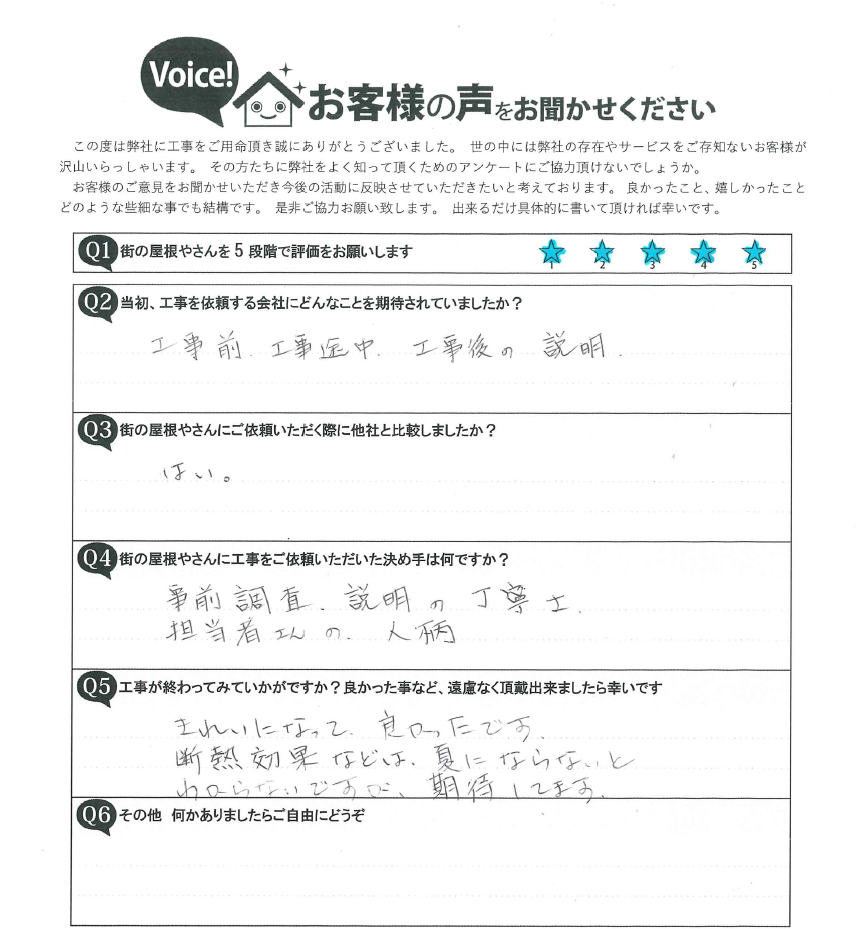 Voice!
お客様の声をお聞かせください
この度は弊社に工事をご用命頂き誠にありがとうございました。 世の中には弊社の存在やサービスをご存知ないお客様が
沢山いらっしゃいます。 その方たちに弊社をよく知って頂くためのアンケートにご協力頂けないでしょうか。
お客様のご意見をお聞かせいただき今後の活動に反映させていただきたいと考えております。 良かったこと、嬉しかったこと
どのような些細な事でも結構です。 是非ご協力お願い致します。 出来るだけ具体的に書いて頂ければ幸いです。
Q1 街の屋根やさんを5段階で評価をお願いします
1 2 3 4 5
Q2 当初、工事を依頼する会社にどんなことを期待されていましたか？
工事前、工事途中、工事後の説明、
Q3 街の屋根やさんにご依頼いただく際に他社と比較しましたか？
はい。
Q4 街の屋根やさんに工事をご依頼いただいた決め手は何ですか？
事前調査、説明の丁寧さ、
担当者さんの、人柄
Q5 工事が終わってみていかがですか？良かった事など、遠慮なく頂戴出来ましたら幸いです
きれいになって、良かったです、
断熱効果などは、夏にならないと
わからないですが、期待してます、
Q6 その他 何かありましたらご自由にどうぞ